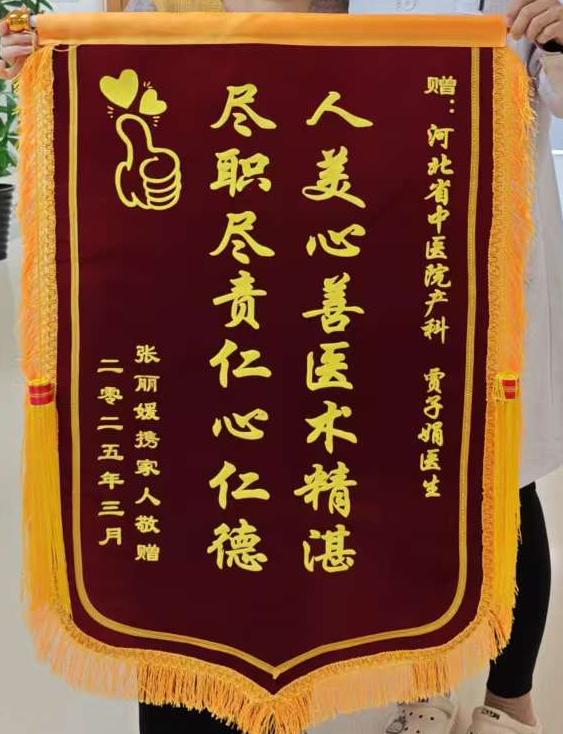 赠：河北省中医院产科 贾子娟医生
人美心善医术精湛
尽职尽责仁心仁德
张丽媛携家人敬赠
二零二五年三月